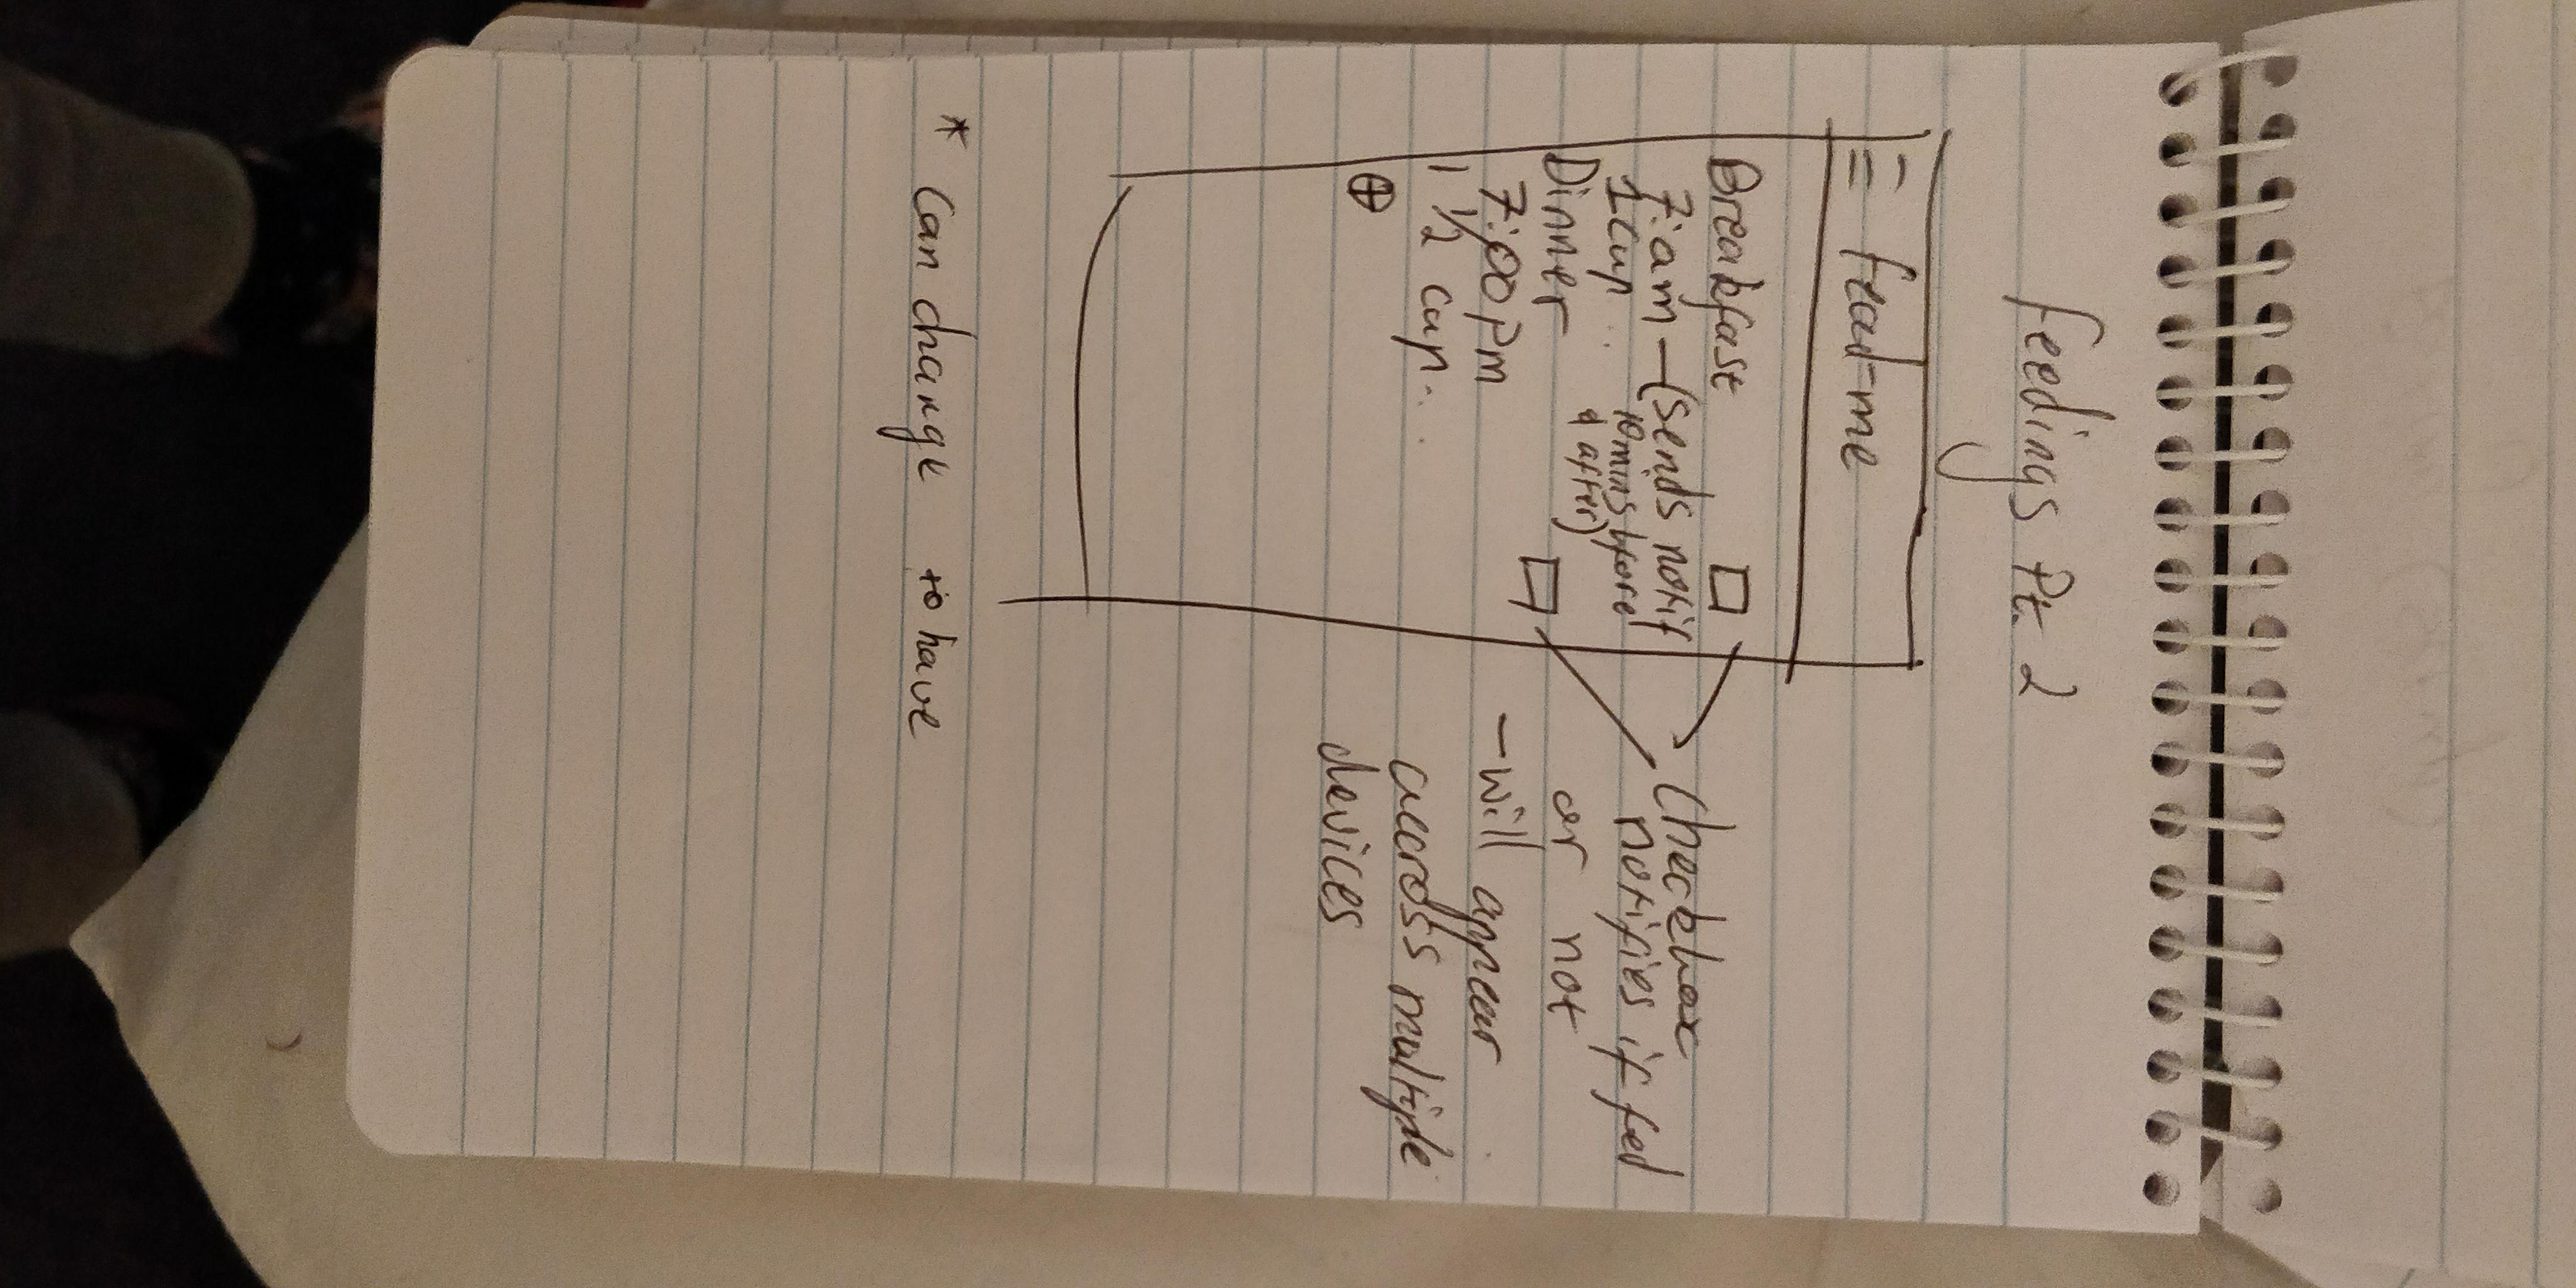 Feedings Pt. 2
Feed-me
Breakfast
7:am - (sends notif
1 cup .. 10 mins bfore
& after)
Dinner
7:00 pm
1 1/2 cup...
Checkbox
notifies if fed
or not
- will appear
accross multiple
devices
* Can change to have